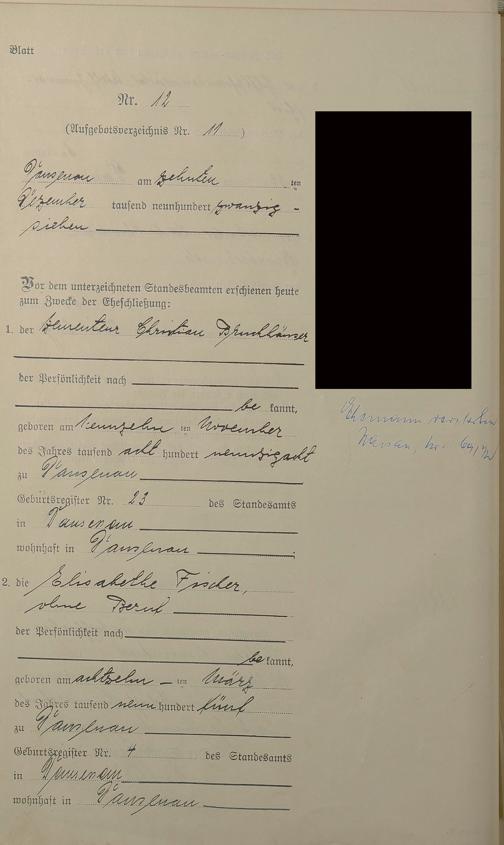 Blatt
Nr. 12
(Aufgebotsverzeichnis Nr. 11)
Dausenau am zehnten ten
Dezember tausend neunhundert zwanzig-
sieben
Vor dem unterzeichneten Standesbeamten erschienen heute
zum Zwecke der Eheschließung:
1. der Zementeur Christian Bruchhäuser
der Persönlichkeit nach
be kannt,
geboren am neunzehn ten November
des Jahres tausend acht hundert neunzigacht
zu Dausenau
Geburtsregister Nr. 23 des Standesamts
in Dausenau
wohnhaft in Dausenau ;
2. die Elisabethe Fischer,
ohne Beruf
der Persönlichkeit nach
be kannt,
geboren am achtzehn - ten März
des Jahres tausend neun hundert fünf
zu Dausenau
Geburtsregister Nr. 4 des Standesamts
in Dausenau
wohnhaft in Dausenau
Ehemann verstorben
Nassau, Nr.